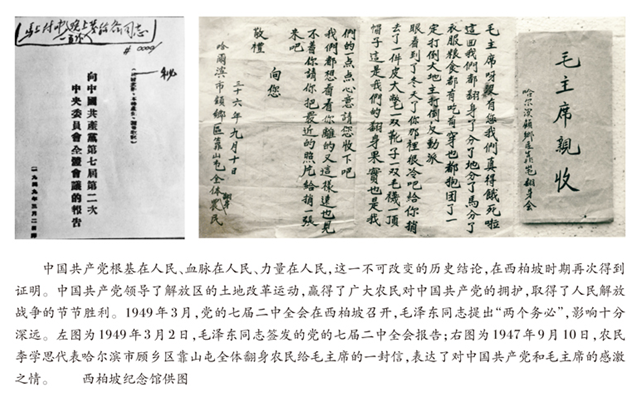 #0009
向中國共產黨第七届第二次
中央委員會全體會議的報告
毛主席親收
毛主席呀沒有您我們真得餓死啦
這回我們都翻身了分了地分了馬分了
衣服粮食都有吃有穿也都抱团了一
定打倒大地主蔣 反動派
眼看到了冬天了你那裡很冷吧给你捎
去了一件皮大氅一双靴子一双毛襪一頂
帽子這是我們的翻身果實也是我
們的一点点心意請您收下吧
我們都想看看你離的又這樣遠也見
不着你請你把最近的照片给捎一張
來吧
向您
敬禮
三十六年九月十日
哈爾濱市顧鄉區靠山屯全体農民
中国共产党根基在人民、血脉在人民、力量在人民,这一不可改变的历史结论,在西柏坡时期再次得到
证明。中国共产党领导了解放区的土地改革运动,赢得了广大农民对中国共产党的拥护,取得了人民解放
战争的节节胜利。1949年3月,党的七届二中全会在西柏坡召开,毛泽东同志提出“两个务必”,影响十分
深远。左图为1949年3月2日,毛泽东同志签发的党的七届二中全会报告;右图为1947年9月10日,农民
李学思代表哈尔滨市顾乡区靠山屯全体翻身农民给毛主席的一封信,表达了对中国共产党和毛主席的感激
之情。 西柏坡纪念馆供图